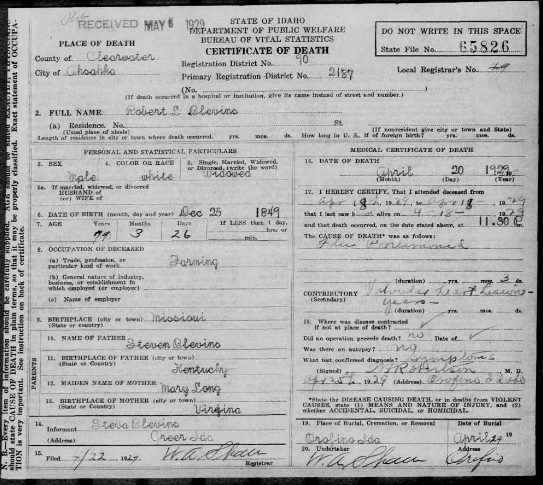 RECEIVED MAY 6 1929
STATE OF IDAHO
DEPARTMENT OF PUBLIC WELFARE
BUREAU OF VITAL STATISTICS
CERTIFICATE OF DEATH
DO NOT WRITE IN THIS SPACE
State File No. 65826
PLACE OF DEATH
County of Clearwater
City of Ahsahka
Registration District No. 90
Primary Registration District No. 2187
Local Registrar's No. 49
(If death occurred in a hospital or institution, give its name instead of street and number.)
2. FULL NAME Robert L Blevins
(a) Residence. No. St.
(Usual place of abode) (If nonresident give city or town and State)
Length of residence in city or town where death occurred. yrs. mos. ds. How long in U. S. if of foreign birth? yrs. mos. ds.
PERSONAL AND STATISTICAL PARTICULARS
3. SEX Male
4. COLOR OR RACE white
5. Single, Married, Widowed, or Divorced, (write the word) Widowed
5a. If married, widowed, or divorced
HUSBAND of
(or) WIFE of
6. DATE OF BIRTH (month, day and year) Dec 25 1849
7. AGE 79 3 26
If LESS than 1 day, hrs. or min.
8. OCCUPATION OF DECEASED
(a) Trade, profession, or particular kind of work. Farming
(b) General nature of industry, business, or establishment in which employed (or employer)
(c) Name of employer
9. BIRTHPLACE (city or town) Missouri
(State or country)
PARENTS
10. NAME OF FATHER Steven Blevins
11. BIRTHPLACE OF FATHER (city or town)
(State or country) Kentucky
12. MAIDEN NAME OF MOTHER Mary Long
13. BIRTHPLACE OF MOTHER (city or town)
(State or Country) Virgina
14. Informant Steva Blevins
(Address) Greer Ida
15. Filed 4/22 1929 W. A. Shaw
Registrar
MEDICAL CERTIFICATE OF DEATH
16. DATE OF DEATH
April 20 1929
(Month) (Day) (Year)
17. I HEREBY CERTIFY, That I attended deceased from
Apr 18 1929, to Apr 18 1929
that I last saw alive on 4-18- 1929
and that death occurred, on the date stated above, at 11.30
The CAUSE OF DEATH* was as follows:
Flu Pneumonia
yrs. mos. 3 ds.
CONTRIBUTORY Valvular heart Lesions
(Secondary) years
18. Where was disease contracted
if not at place of death?
Did an operation precede death? no Date of
Was there an autopsy? no
What test confirmed diagnosis? Symptoms
(Signed) Robertson M. D.
1929 (Address) Orofino Idaho
*State the DISEASE CAUSING DEATH, or in deaths from VIOLENT CAUSES, state (1) MEANS AND NATURE OF INJURY, and (2) whether ACCIDENTAL, SUICIDAL, or HOMICIDAL.
19. Place of Burial, Cremation or Removal Date of Burial
Orofino Ida April 24 19
20. Undertaker W. A. Shaw Address Orofino